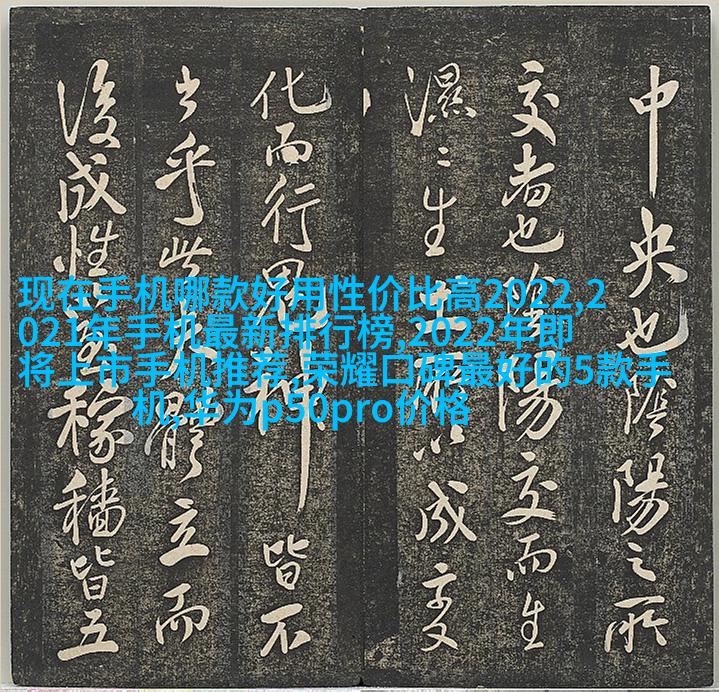 中央也陰陽之所
交者也陰陽交而生
濕〻生土所以成変
化而行鬼神皆不
出乎此大體立而
後成性稼穡皆五
现在手机哪款好用性价比高2022,2
021年手机最新排行榜,2022年即
将上市手机推荐,荣耀口碑最好的5款手
机,华为p50pro价格